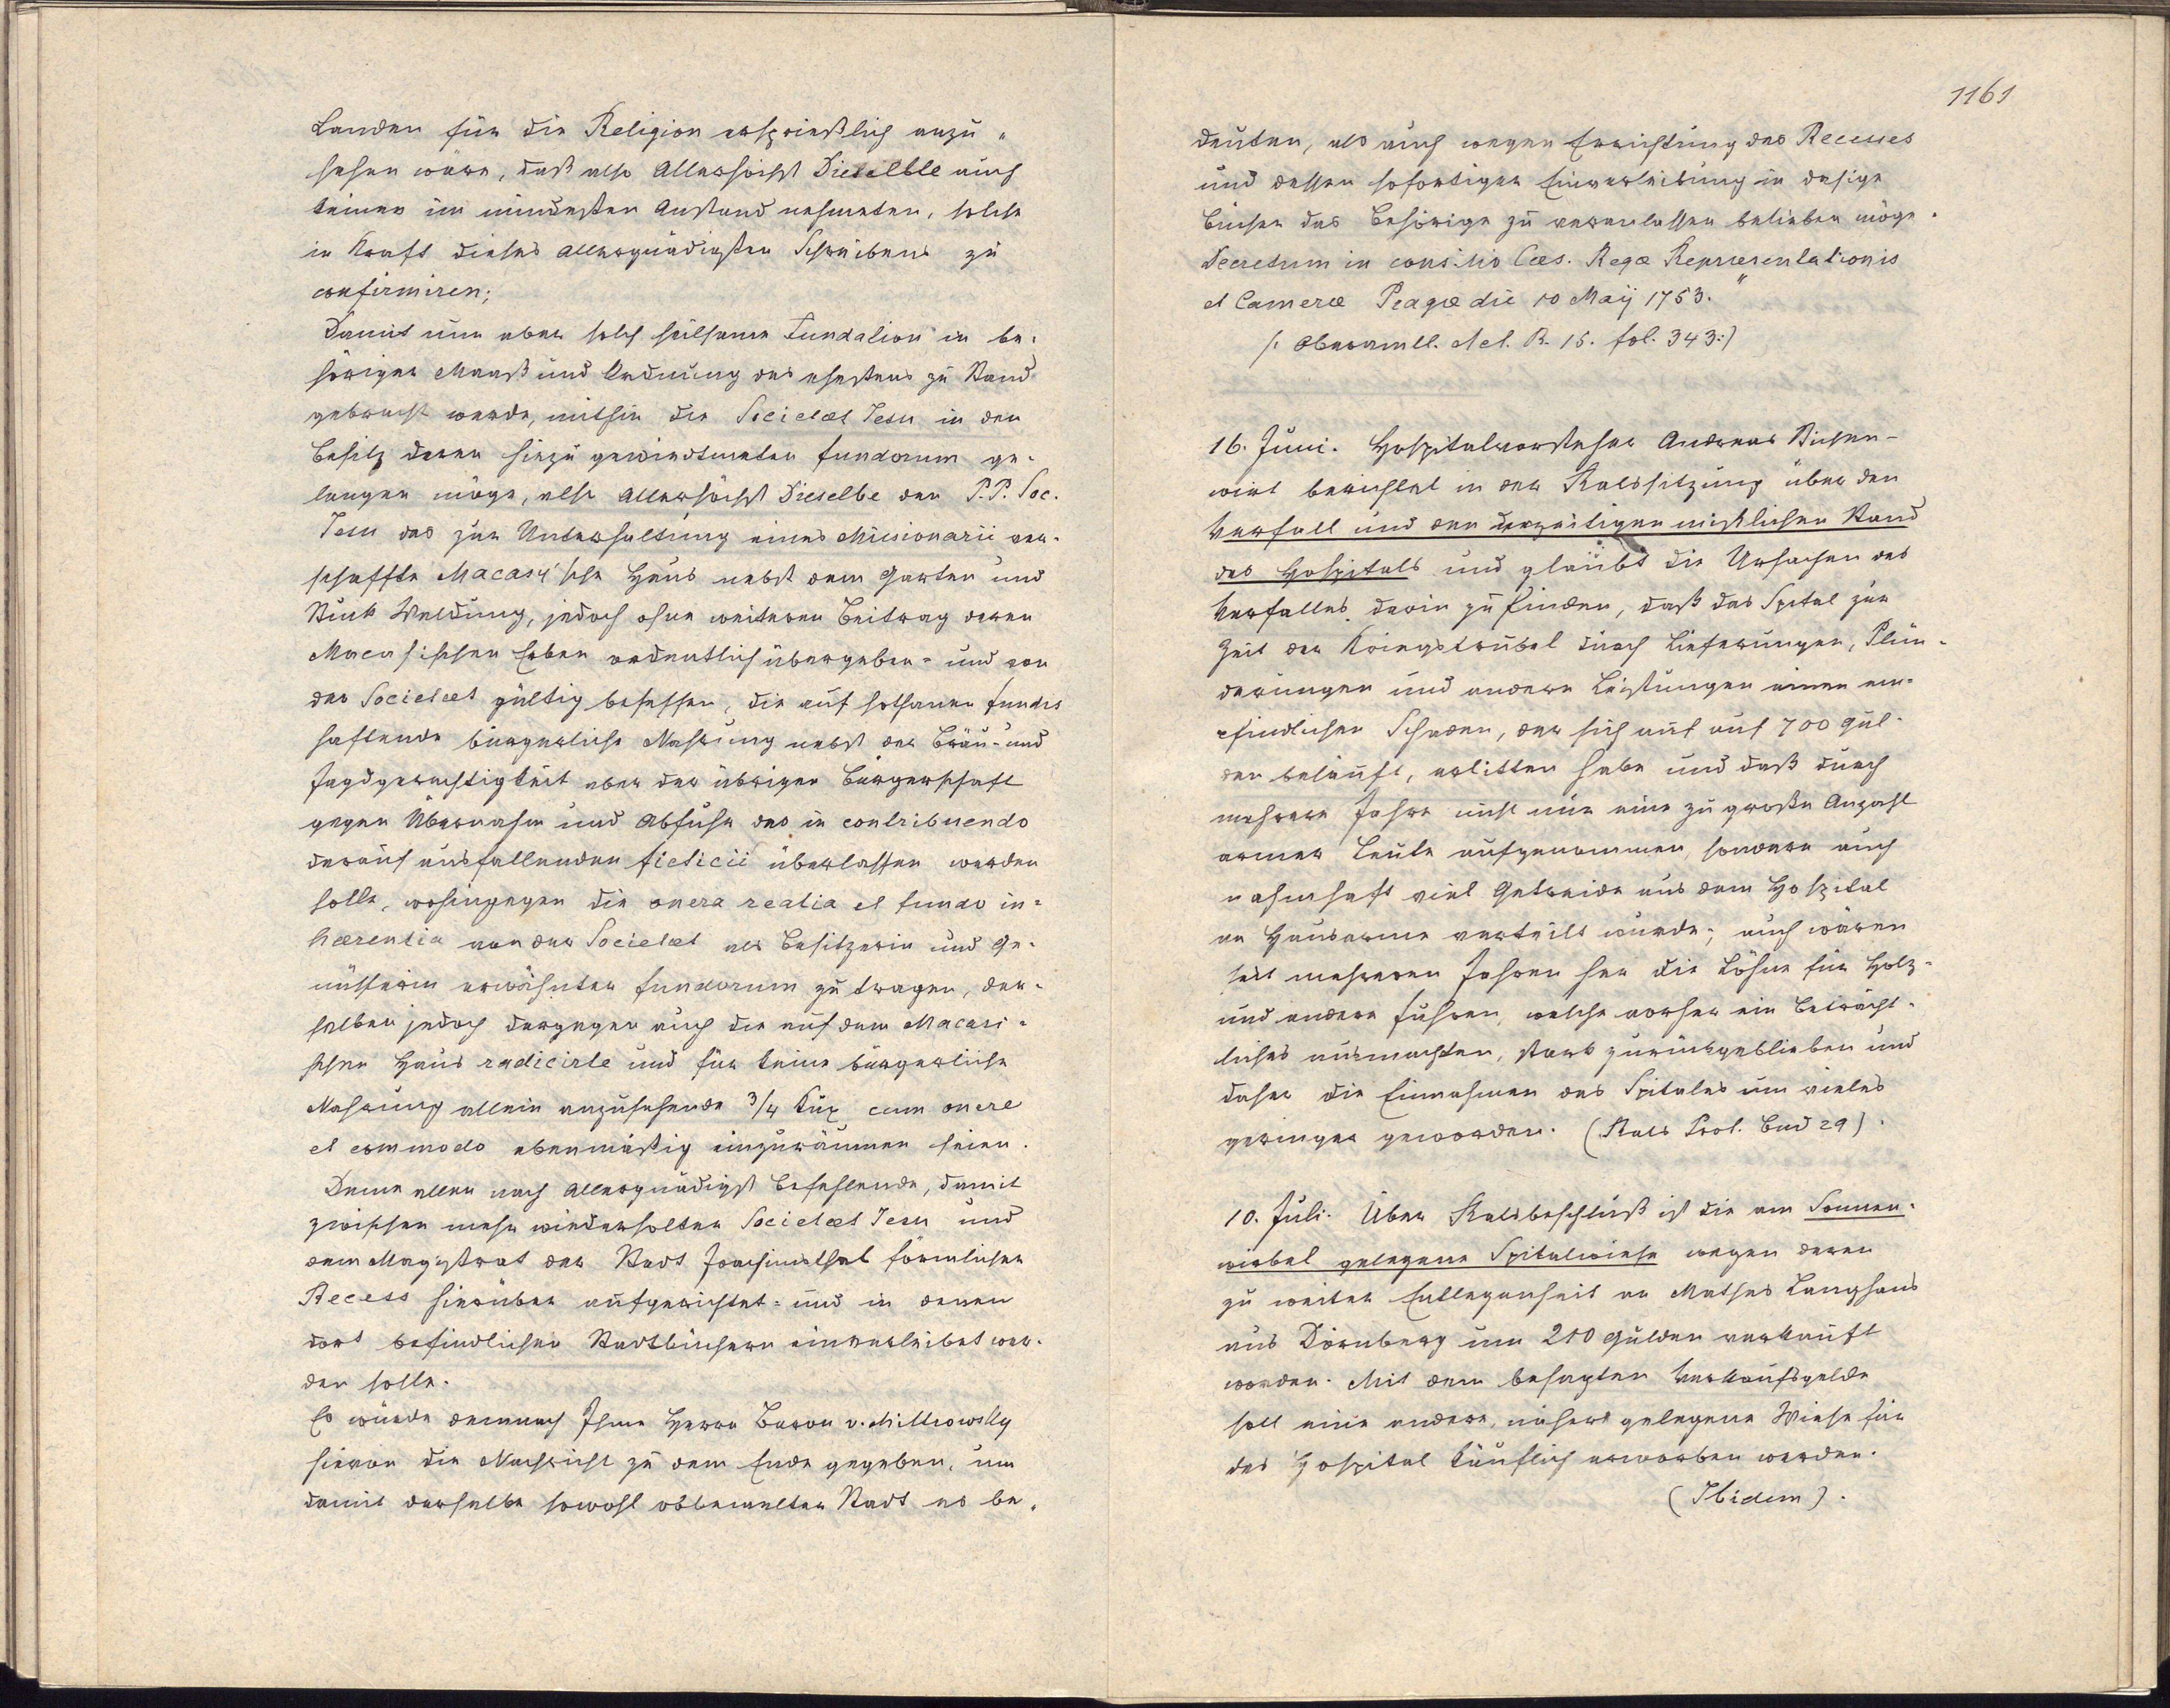 Landen für die Religion ersprießlich anzu-
sehen wäre, daß also Allerhöchst Dieselbe auch
keinen im mindesten Anstand nehmeten, solche
in Kraft dieses allergnädigsten Schreibens zu
confirmiren;
Damit nun aber solch heilsame Fundation in be-
höriger Maaß und Ordnung des ehestens zu Stand
gebracht werde, mithin die Societæt Jesu in den
Besitz deren hiezu gewiedmeten fundorum ge-
langen möge, also Allerhöchst Dieselbe den P.P. Soc.
Jesu das zur Unterhaltung eines Missionarii ver-
schaffte Macasy'sche Haus nebst dem Garten und
Stück Waldung, jedoch ohne weiteren Beitrag deren
Macasischen Erben ordentlich übergeben- und von
der Societæt gültig besessen, die auf sothanen fundis
haftende bürgerliche Nahrung nebst der Bräu- und
Jagdgerechtigkeit aber der übrigen Bürgerschaft
gegen Übernahm und Abfuhr des in contribuendo
darauf ausfallenden ficticii überlassen werden
solle, wohingegen die onera realia et fundo in-
hærentia von der Societæt als Besitzerin und Ge-
nüsserin erwähnter fundorum zu tragen, der-
selben jedoch dargegen auch die auf dem Macasi-
schen Haus radicirte und für keine bürgerliche
Nahrung allein anzusehende 3/4 Kux cum onere
et commodo ebenmäßig einzuräumen seien.
Deme allen nach Allergnädigst befehlende, damit
zwischen mehr wiederholter Societæt Jesu und
dem Magistrat der Stadt Joachimsthal förmlicher
Recess hierüber aufgerichtet- und in denen
dort befindlichen Stadtbüchern einverleibet wer-
den solle.
Es würde demnach Ihme Herrn Baron v. Mittrowsky
hievon die Nachricht zu dem Ende gegeben, um
damit derselbe sowohl obbemelter Stadt es be-
1161
deuten, als auch wegen Errichtung des Recesses
und dessen sofortigen Einverleibung in dasige
Bücher das Behörige zu veranlassen belieben möge.
Decretum in consilio Cæs. Regæ Repræsentationis
et Cameræ Pragæ die 10 Maij 1753."
/: Oberamtl. Act. R. 15. fol. 343:/
16. Juni. Hospitalvorsteher Andreas
wirt berichtet in der Ratssitzung über den
Verfall und den derzeitigen mißlichen Stand
des Hospitals und glaubt die Ursachen des
Verfalles darin zu finden, daß das Spital zur
Zeit der Kriegstrubel durch Lieferungen, Plün-
derungen und andere Leistungen einen em-
pfindlichen Schaden, der sich auf auf 700 Gul-
den beläuft, erlitten habe und daß durch
mehrere Jahre nicht nur eine zu große Anzahl
armer Leute aufgenommen, sondern auch
nahmhaft viel Getreide aus dem Hospital
an Hausarme verteilt wurde; auch wären
seit mehreren Jahren her die Löhne für Holz-
und andere Fuhren, welche vorher ein Beträcht-
liches ausmachten, stark zurückgeblieben und
daher die Einnahmen des Spitales um vieles
geringer geworden. (Rats Prot. Bnd 29).
10. Juli. Über Ratsbeschluß ist die am Sonnen-
wirbel gelegene Spitalwiese wegen deren
zu weiter Entlegenheit an Mathes Langhans
aus Dürnberg um 210 Gulden verkauft
worden. Mit dem besagten Verkaufsgelde
soll eine andere, näher gelegene Wiese für
das Hospital käuflich erworben werden.
(Ibidem).